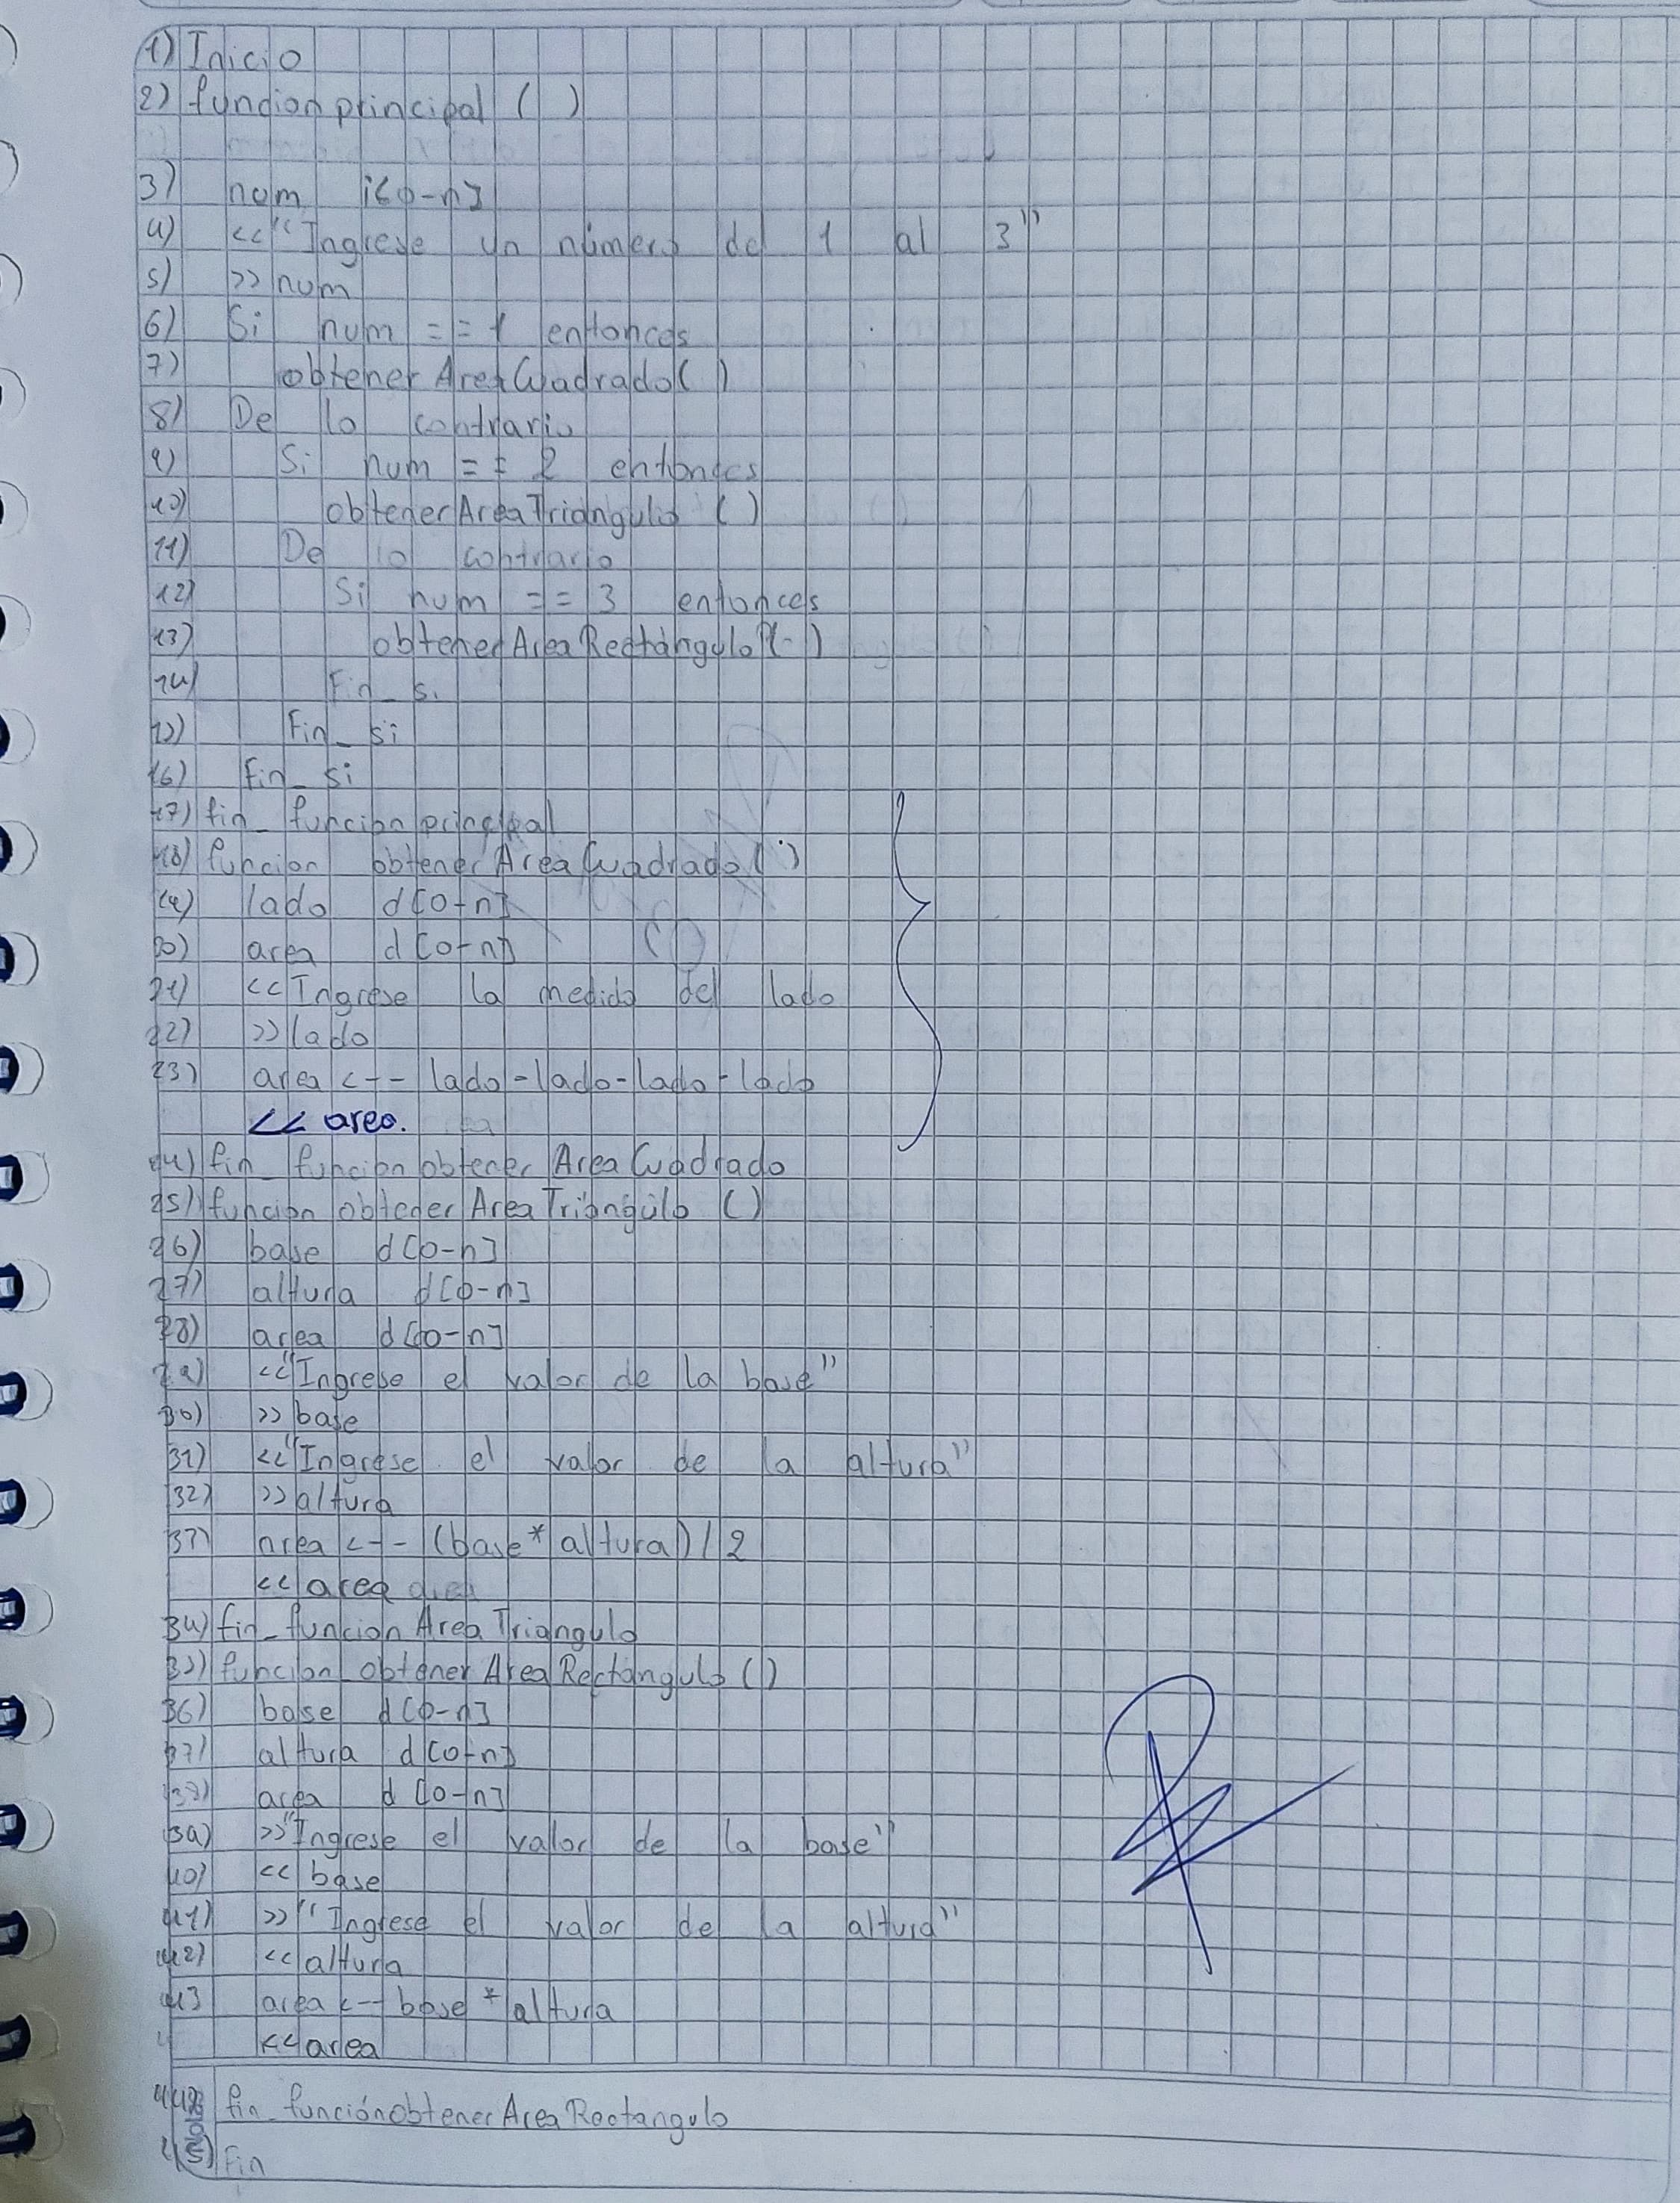 1) Inicio
2) funcion principal ( )
3) num i[0-n]
4) <<"Ingrese un número del 1 al 3"
5) >> num
6) Si num == 1 entonces
7) obtenerAreaCuadrado( )
8) De lo contrario
9) Si num == 2 entonces
10) obtenerAreaTriangulo ( )
11) De lo contrario
12) Si num == 3 entonces
13) obtenerAreaRectángulo ( )
14) Fin_si
15) Fin_si
16) Fin_si
17) fin_funcion principal
18) funcion obtenerAreaCuadrado( )
19) lado d[0-n]
20) area d[0-n]
21) <<Ingrese la medida del lado
22) >>lado
23) area <-- lado-lado-lado-lado
<< area.
24) fin_funcion obtenerAreaCuadrado
25) funcion obtenerAreaTriangulo ( )
26) base d[0-n]
27) altura d[0-n]
28) area d[0-n]
29) <<"Ingrese el valor de la base"
30) >> base
31) <<"Ingrese el valor de la altura"
32) >> altura
33) area <-- (base * altura) / 2
<< area area
34) fin_funcion AreaTriangulo
35) funcion_obtenerAreaRectangulo ( )
36) base d[0-n]
37) altura d[0-n]
38) area d[0-n]
39) >>"Ingrese el valor de la base"
40) << base
41) >>"Ingrese el valor de la altura"
42) << altura
43 area <-- base * altura
<< area
44) fin_funciónobtenerAreaRectangulo
45) Fin